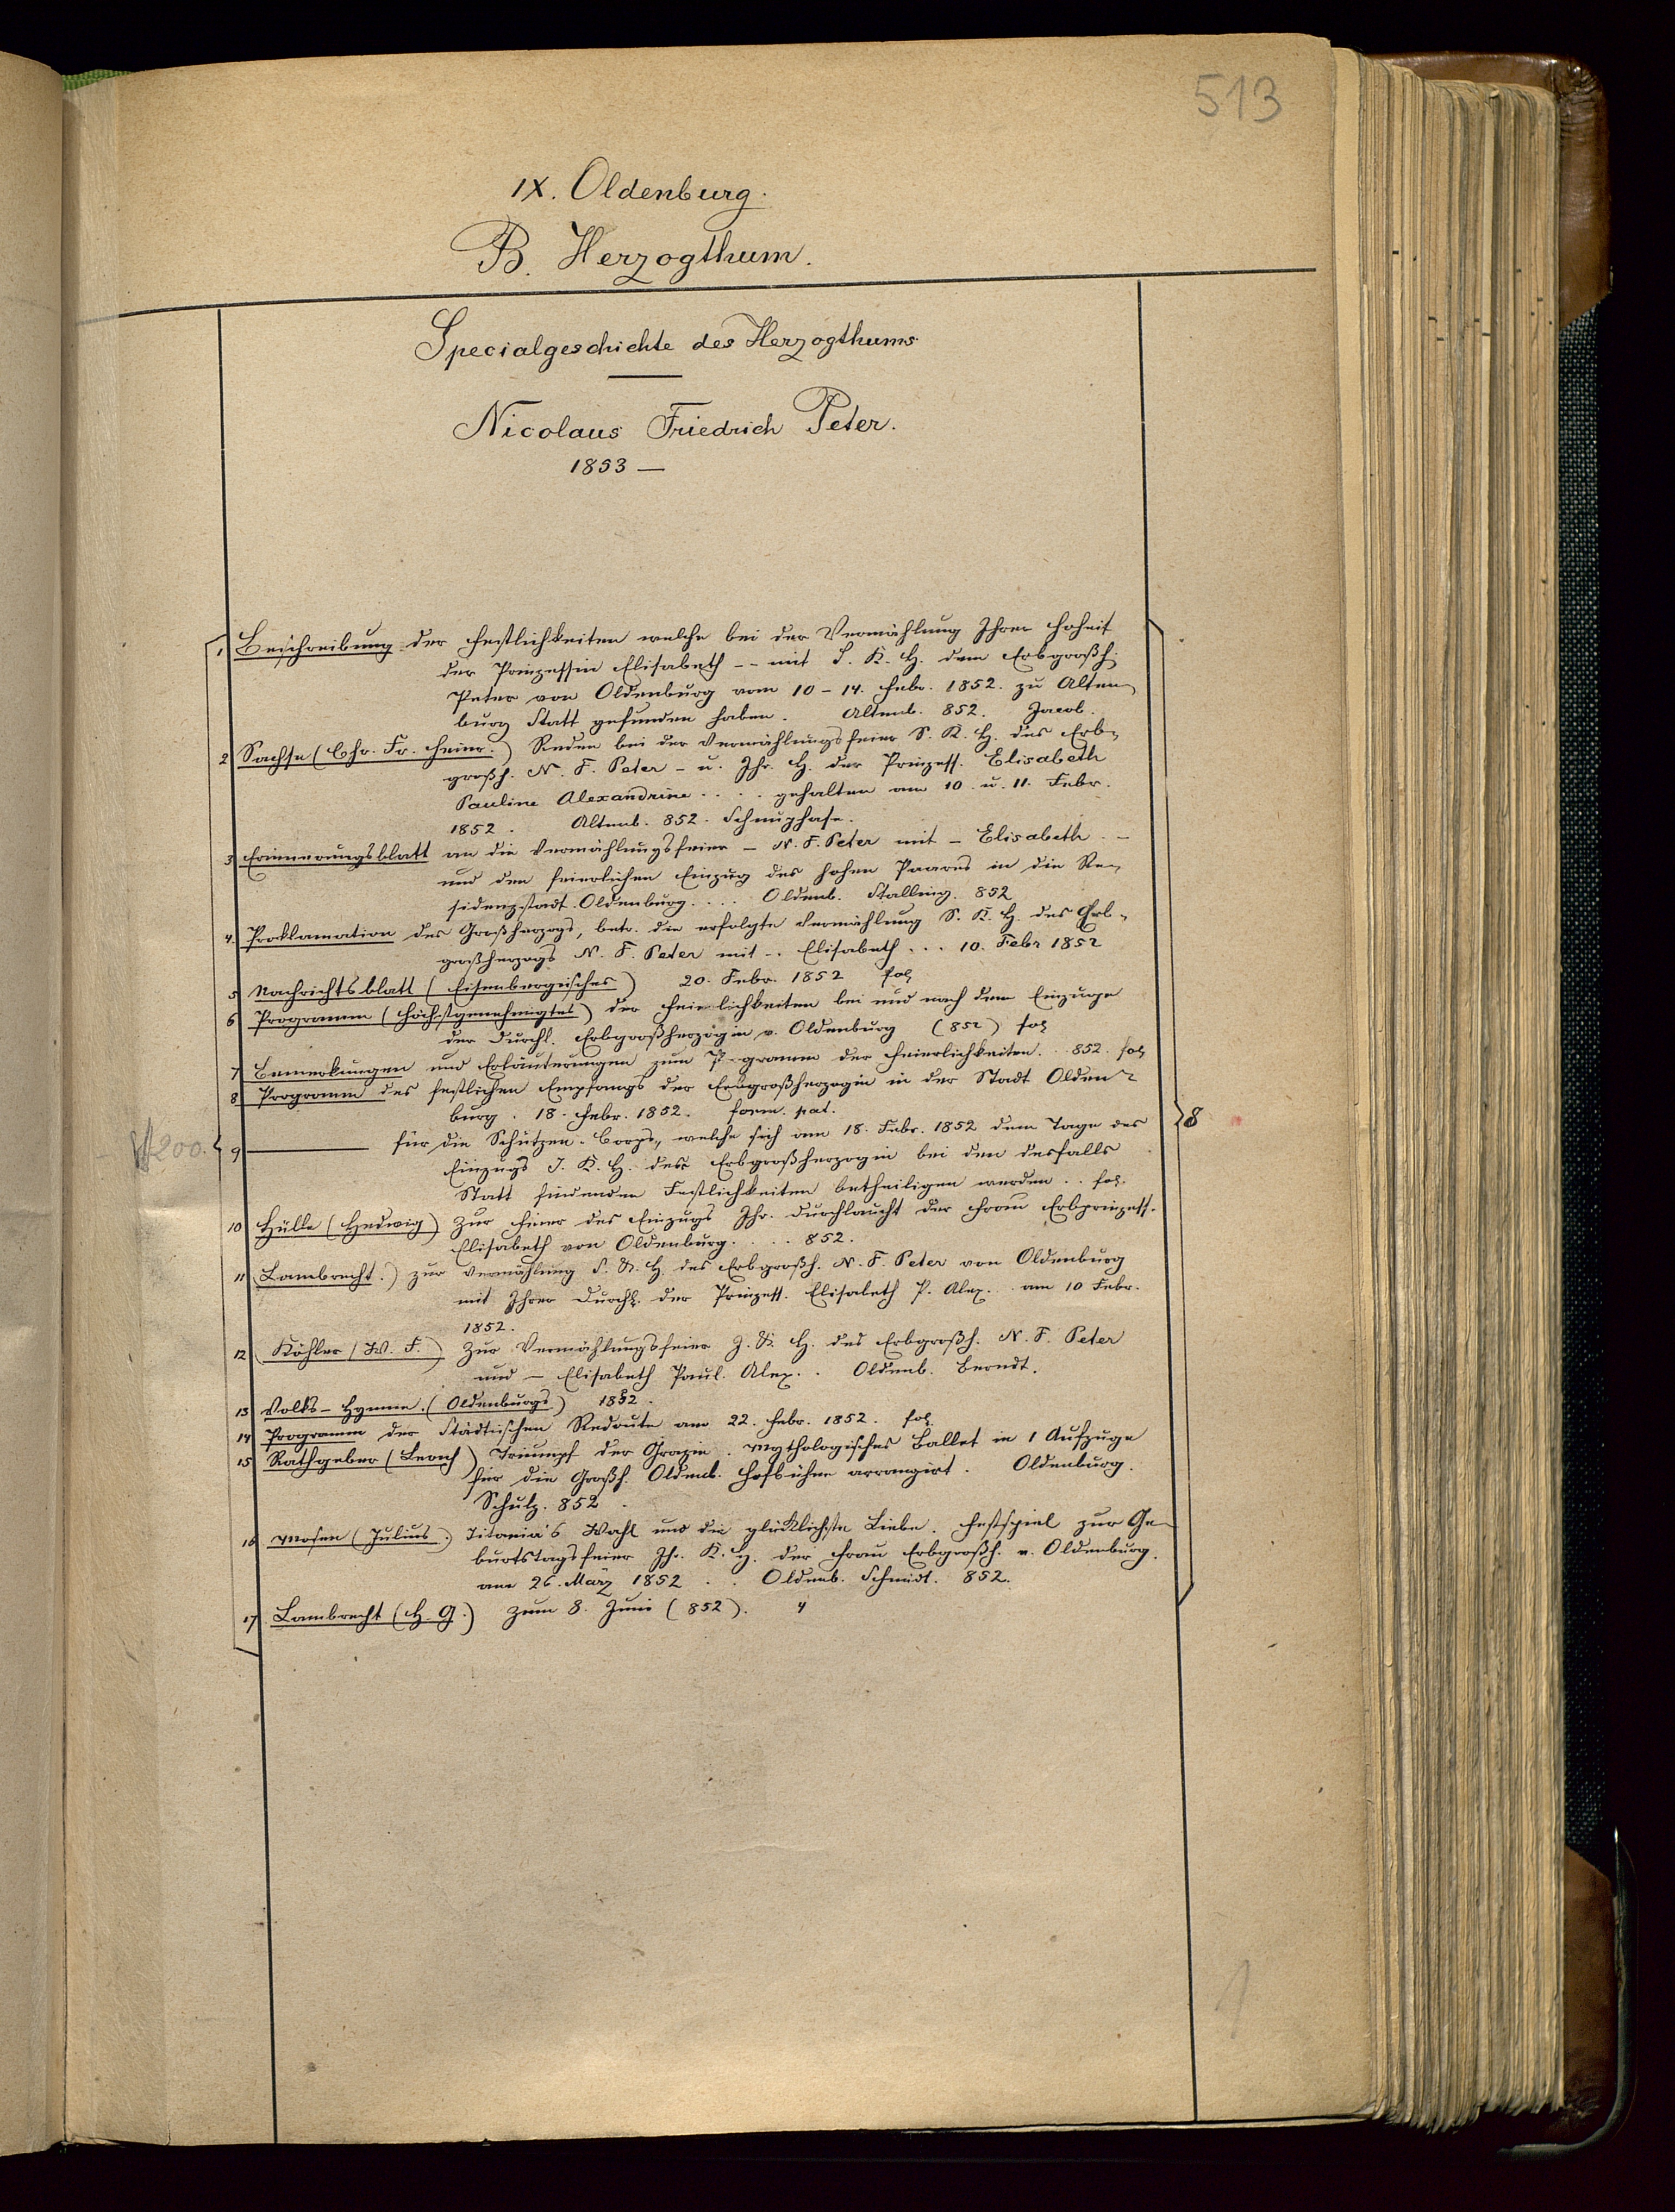 513
IX. Oldenburg.
B. Herzogthum.
Specialgeschichte des Herzogthums
Nicolaus Friedrich Peter.
1853 —
1. Beschreibung der Festlichkeiten welche bei der Vermählung Ihrer Hoheit
der Prinzessin Elisabeth -- mit S. K. H. dem Erbgroßh.
Peter von Oldenburg vom 10-14. Febr. 1852. zu Alten-
burg Statt gefunden haben. Altenb. 852. Jacob.
2 Sachse (Chr. Fr. Heinr.) Reden bei der Vermählungsfeier S. K. H. des Erb-
großh. N. F. Peter - u. Ihr. H. der Prinzess. Elisabeth
Pauline Alexandrine .... gehalten am 10. u. 11. Febr.
1852. Altenb. 852. Schnuphase.
3 Erinnerungsblatt an die Vermählungsfeier - N. F. Peter mit - Elisabeth -
und den feierlichen Einzug des hohen Paares in die Re-
sidenzstadt Oldenburg.... Oldenb. Stalling. 852
4. Proklamation des Großherzogs, betr. die erfolgte Vermählung S. K. H. des Erb-
großherzogs N. F. Peter mit .. Elisabeth ... 10. Febr 1852
5 Nachrichtsblatt (Eisenbergisches) 20. Febr. 1852 fol
6 Programm (Höchstgenehmigtes) der Feierlichkeiten bei und nach dem Einzuge
der Durchl. Erbgroßherzogin v. Oldenburg (852) fol
7 Bemerkungen und Erläuterungen zum P-gramm der Feierlichkeiten. 852. fol
8 Programm des festlichen Empfangs der Erbgroßherzogin in der Stadt Olden-
burg. 18. Febr. 1852. form. pat.
9 — für die Schützen-Corps, welche sich am 18. Febr. 1852 dem Tage des
Einzugs I. K. H. der Erbgroßherzogin bei den desfalls
Statt findenden Festlichkeiten betheiligen werden.. fol.
8
200.
10 Hülle (Hedwig) Zur Feier des Einzugs Ihr. Durchlaucht der Frau Erbprinzess.
Elisabeth von Oldenburg.... 852.
11 Lambrecht.) zur Vermählung S. K. H. des Erbgroßh. N. F. Peter von Oldenburg
mit Ihrer Durchl. der Prinzess. Elisabeth P. Alex.. am 10 Febr.
1852.
12 Köhler (W. F.) Zur Vermählungsfeier J. K. H. des Erbgroßh. N. F. Peter
und - Elisabeth Paul. Alex.. Oldenb. Berndt.
13 Volks-Hymne. (Oldenburgs) 1852.
14 Programm der Städtischen Redoute am 22. Febr. 1852. fol.
15 Rathgeber ( ) Triumpf der Grazie. Mythologisches Ballet in 1 Aufzuge
für die Großh. Oldenb. Hofbühne arrangirt. Oldenburg.
Schulz. 852.
16 Mosen (Julius.) Titania's Wahl und die glücklichste Liebe. Festspiel zur Ge-
burtstagsfeier Ihr. K. H. der Frau Erbgroßh. v. Oldenburg.
am 26. März 1852 .. Oldenb. Schmidt. 852.
17 Lambrecht (H. G.) zum 8. Juni (852). 4
1